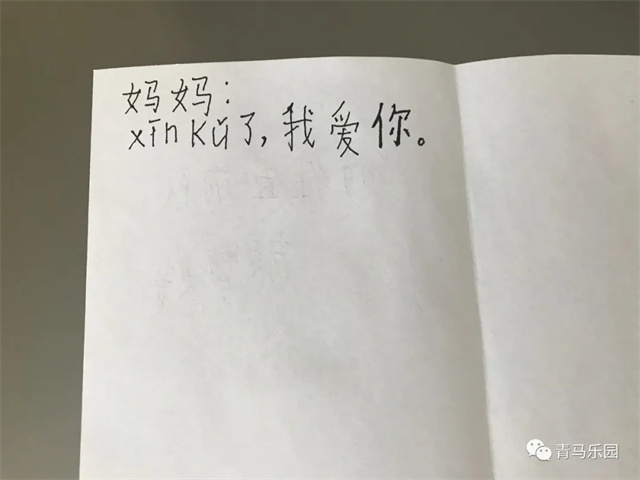 妈妈：
xīn kǔ了，我爱你。
青马乐园